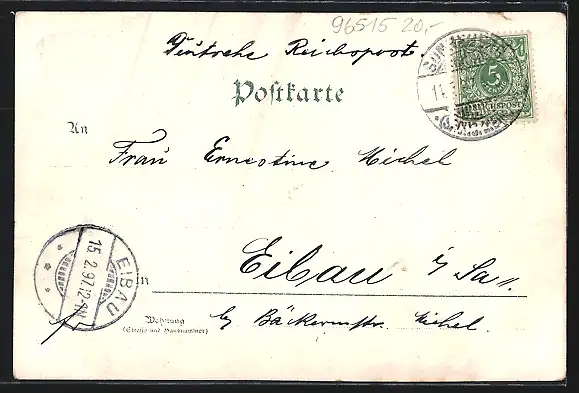 96515 20,-
Deutsche Reichspost.
5
REICHSPOST
Postkarte
An
Frau Ernestine Michel
EIBAU
15.2.97.12-1N.
Eibau i/Sa.
in
Wohnung
(Straße und Hausnummer)
by Bäckermstr. Michel.